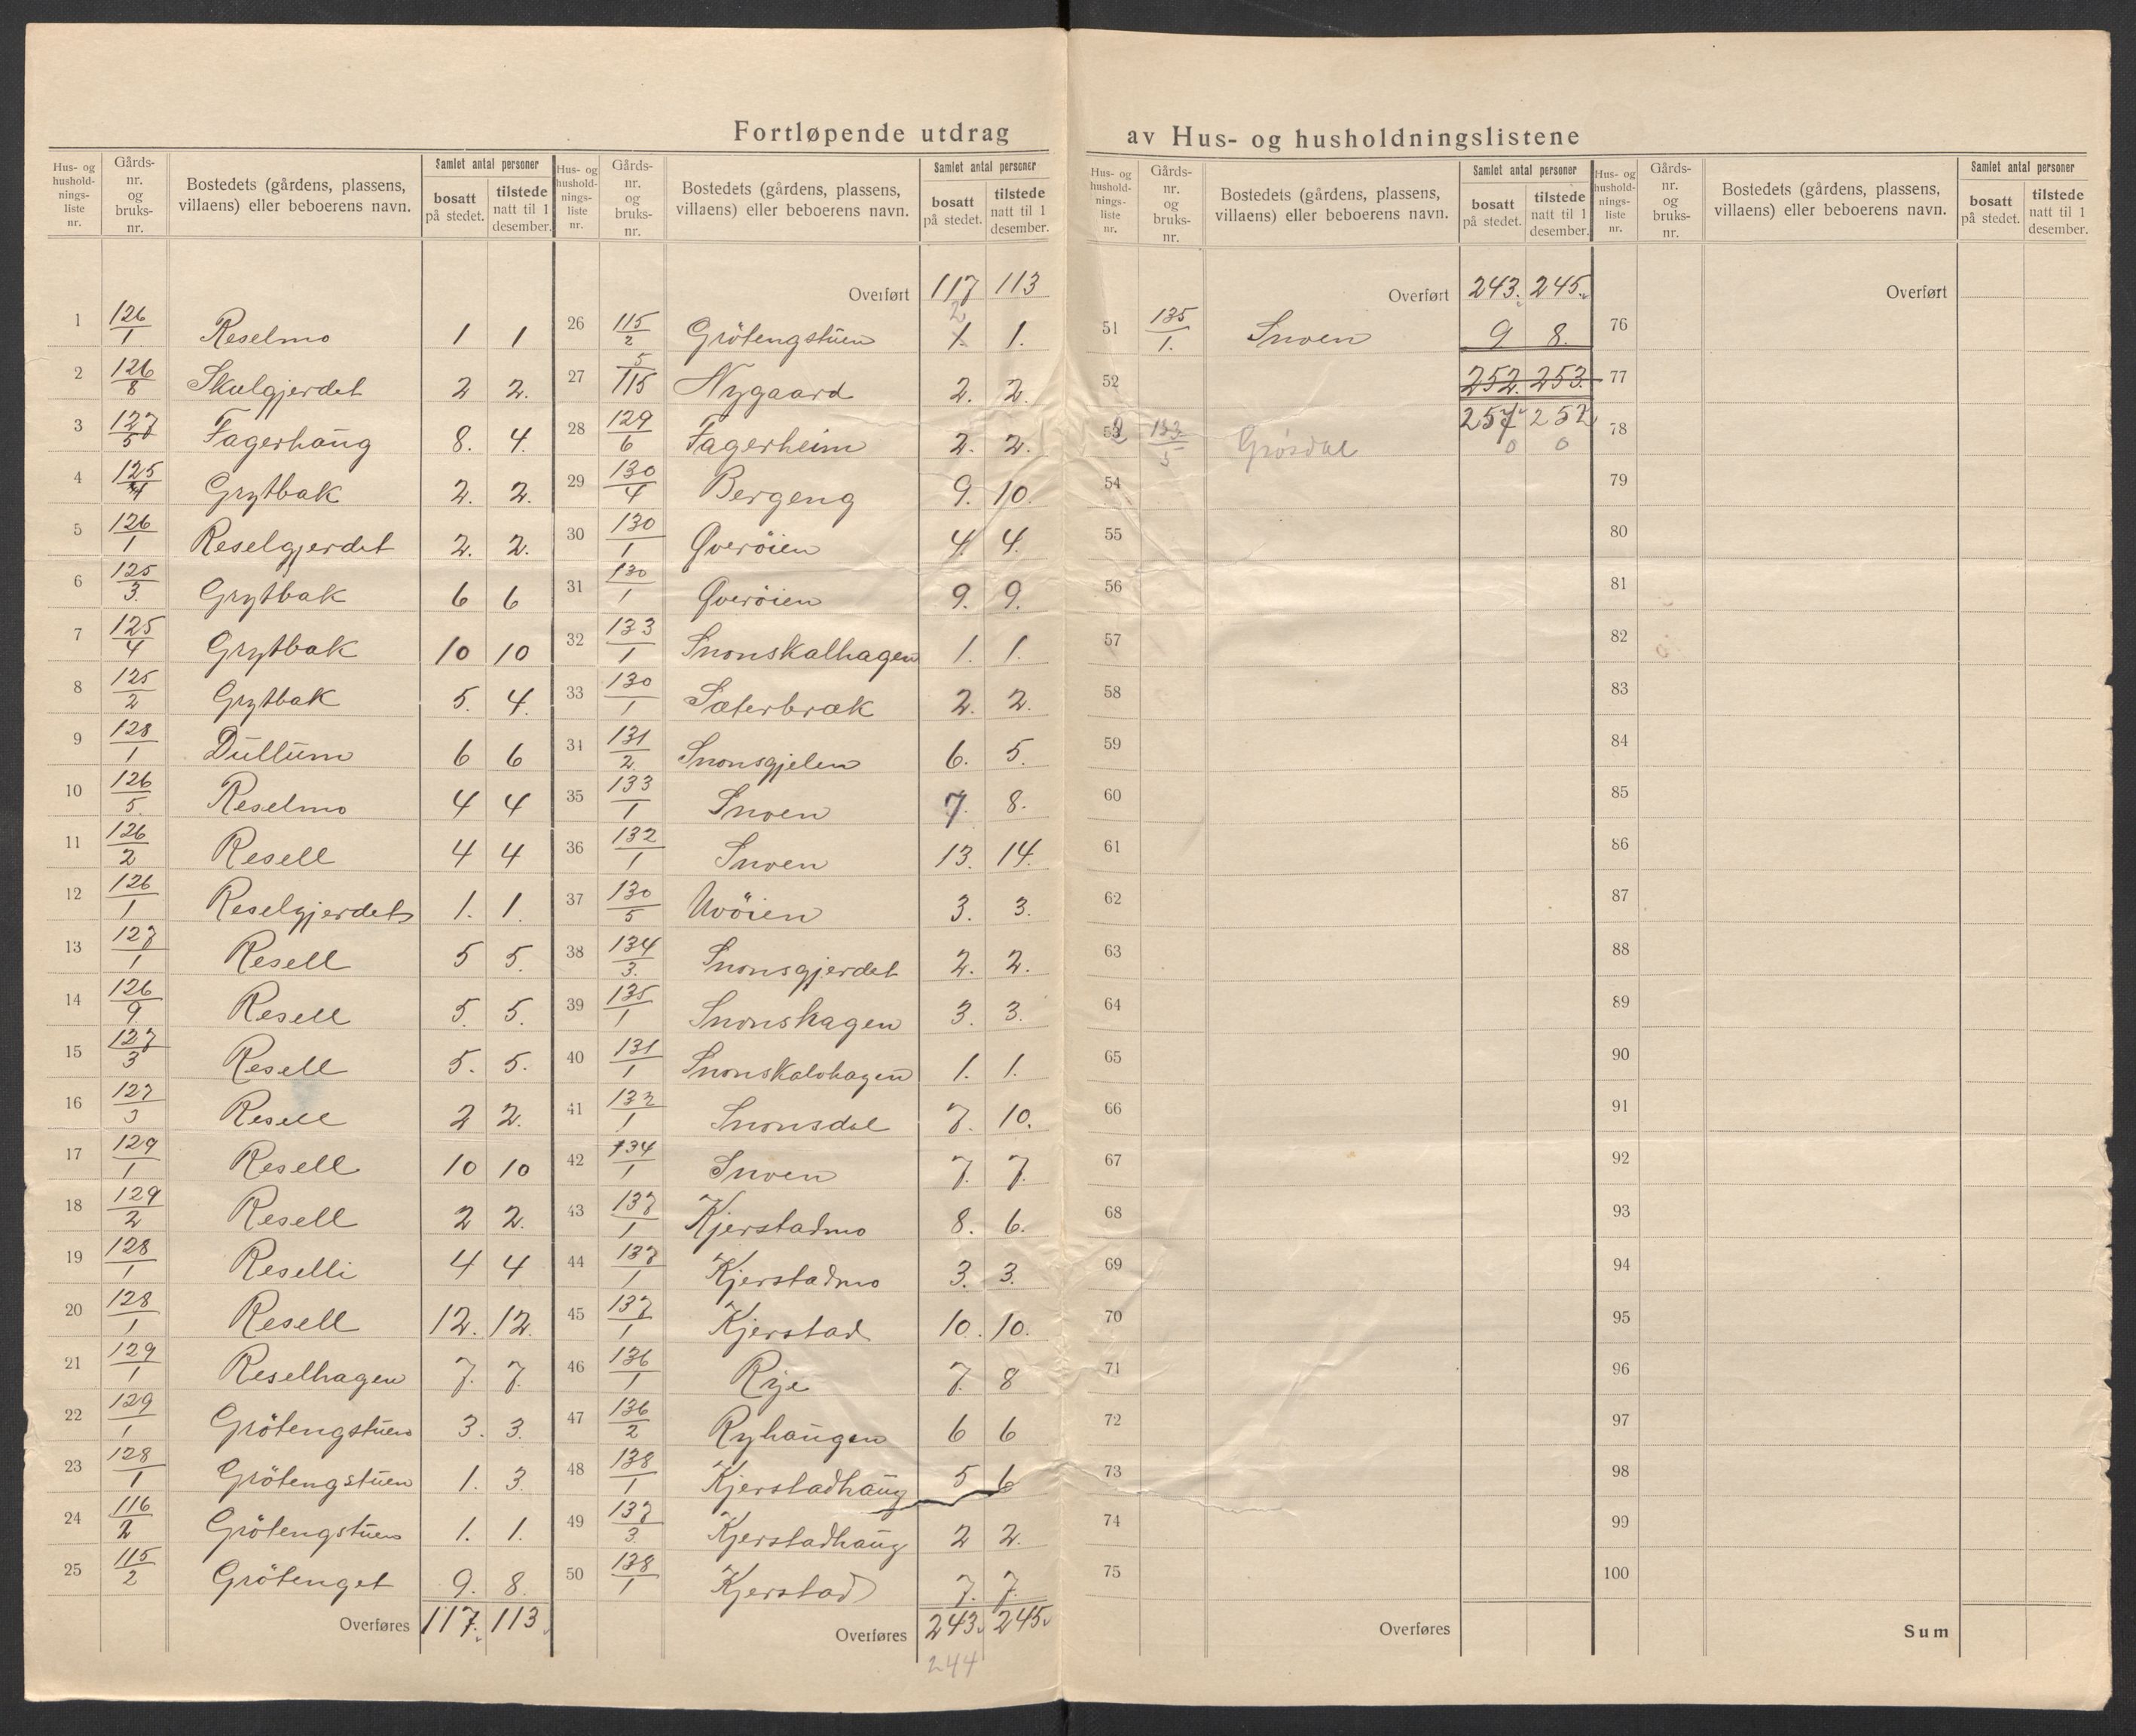 Fortløpende utdrag av Hus- og husholdningslistene
Hus- og husholdnings-liste nr. | Gårds-nr. og bruks-nr. | Bostedets (gårdens, plassens, villaens) eller beboerens navn. | Samlet antal personer | bosatt på stedet. | tilstede natt til 1 desember.
1 126/1 Reselmo 1 1
2 126/8 Skulgjerdet 2 2.
3 127/5 Fagerhaug 8. 4.
4 125/4 Grytbak 2. 2.
5 126/1 Reselgjerdet 2. 2.
6 125/3. Grytbak 6 6
7 125/4 Grytbak 10 10
8 125/2 Grytbak 5. 4.
9 128/1 Dullum 6 6
10 126/5. Reselmo 4 4
11 126/2 Resell 4 4
12 126/1 Reselgjerdet 1. 1.
13 127/1 Resell 5 5.
14 126/9. Resell 5. 5.
15 127/3 Resell 5. 5.
16 127/3 Resell 2 2.
17 129/1 Resell 10 10
18 129/2 Resell 2 2.
19 128/1 Reselli 4 4
20 128/1 Resell 12. 12.
21 129/1 Reselhagen 7. 7.
22 129/1 Grötengstuen 3. 3.
23 128/1 Grötengstuen 1. 3.
24 116/2 Grötengstuen 1. 1.
25 115/2 Grötenget 9. 8.
Overføres 117. 113.
Hus- og husholdnings-liste nr. | Gårds-nr. og bruks-nr. | Bostedets (gårdens, plassens, villaens) eller beboerens navn. | Samlet antal personer | bosatt på stedet. | tilstede natt til 1 desember.
Overført 117 113
26 115/2 Grötengstuen 1. 2 1.
27 5/115 Nygaard 2. 2.
28 129/6 Fagerheim 2. 2.
29 130/4 Bergeng 9. 10.
30 130/1 Qveröien 4. 4.
31 130/1 Qveröien 9. 9.
32 133/1 Snonskalhagen 1. 1.
33 130/1 Sæterbræk 2. 2.
34 131/2. Snonsgjelen 6. 5.
35 133/1 Snoen 7. 8.
36 132/1 Snoen 13. 14.
37 130/5 Uvöien 3. 3.
38 134/3. Snonsgjerdet 2. 2.
39 135/1 Snonshagen 3. 3.
40 131/1 Snonskalvhagen 1. 1.
41 132/1 Snonsdal 7. 10.
42 134/1 Snoen 7. 7.
43 137/1 Kjerstadmo 8. 6.
44 137/1 Kjerstadmo 3. 3.
45 137/1 Kjerstad 10. 10.
46 136/1 Rye 7. 8
47 136/2 Ryhaugen 6 6
48 138/1 Kjerstadhaug 5 6
49 137/3. Kjerstadhaug 2 2.
50 138/1 Kjerstad 7. 7.
Overføres 243. 245.
244
Hus- og husholdnings-liste nr. | Gårds-nr. og bruks-nr. | Bostedets (gårdens, plassens, villaens) eller beboerens navn. | Samlet antal personer | bosatt på stedet. | tilstede natt til 1 desember.
Overført 243. 245.
51 135/1. Snoen 9 8.
52 252. 253.
257 252
53 2 133/5 Grøsdal 0 0
54
55
56
57
58
59
60
61
62
63
64
65
66
67
68
69
70
71
72
73
74
75
Overføres
Hus- og husholdnings-liste nr. | Gårds-nr. og bruks-nr. | Bostedets (gårdens, plassens, villaens) eller beboerens navn. | Samlet antal personer | bosatt på stedet. | tilstede natt til 1 desember.
Overført
76
77
78
79
80
81
82
83
84
85
86
87
88
89
90
91
92
93
94
95
96
97
98
99
100
Sum